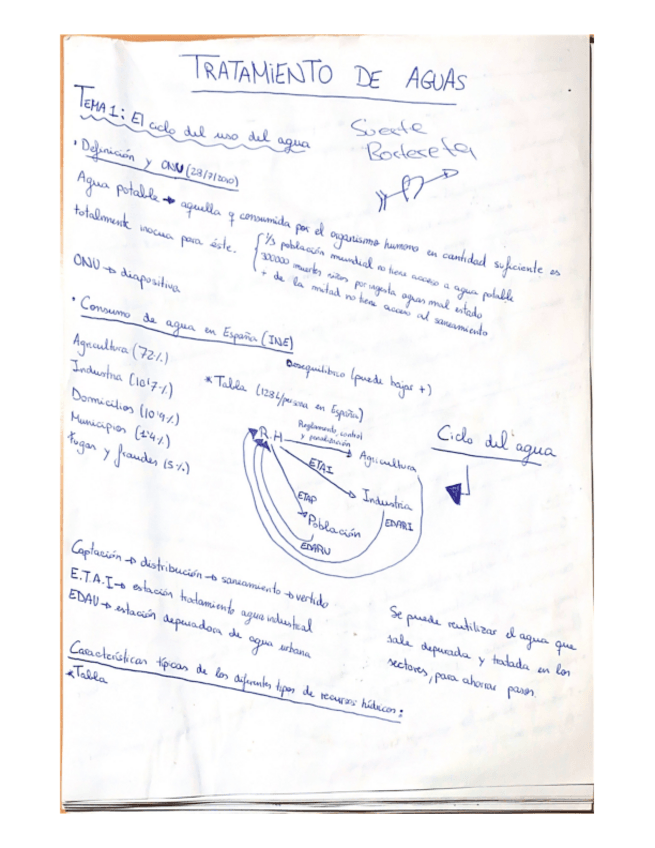 TRATAMIENTO DE AGUAS
TEMA 1: El ciclo del uso del agua
Suerte
· Definición y ONU (28/7/2010)
Agua potable → aquella q consumida por el organismo humano en cantidad suficiente es
totalmente inocua para éste.
1/3 población mundial no tiene acceso a agua potable
300000 muertes niños por ingesta aguas mal estado
+ de la mitad no tiene acceso al saneamiento
ONU → diapositiva
· Consumo de agua en España (INE)
Agricultura (72%)
Industria (10'7%)
Domicilios (10'9%)
Municipios (1'4%)
Fugas y fraudes (5%)
Desequilibrio (puede bajar +)
* Tabla (128L/persona en España)
Ciclo del agua
R.H
Reglamento, control
y penalización
Agricultura
ETAI
Industria
ETAP
EDARI
Población
EDARU
Captación → distribución → saneamiento → vertido
E.T.A.I → estación tratamiento agua industrial
EDAU → estación depuradora de agua urbana
Se puede reutilizar el agua que
sale depurada y tratada en los
sectores, para ahorrar pasos.
Características típicas de los diferentes tipos de recursos hídricos:
* Tabla